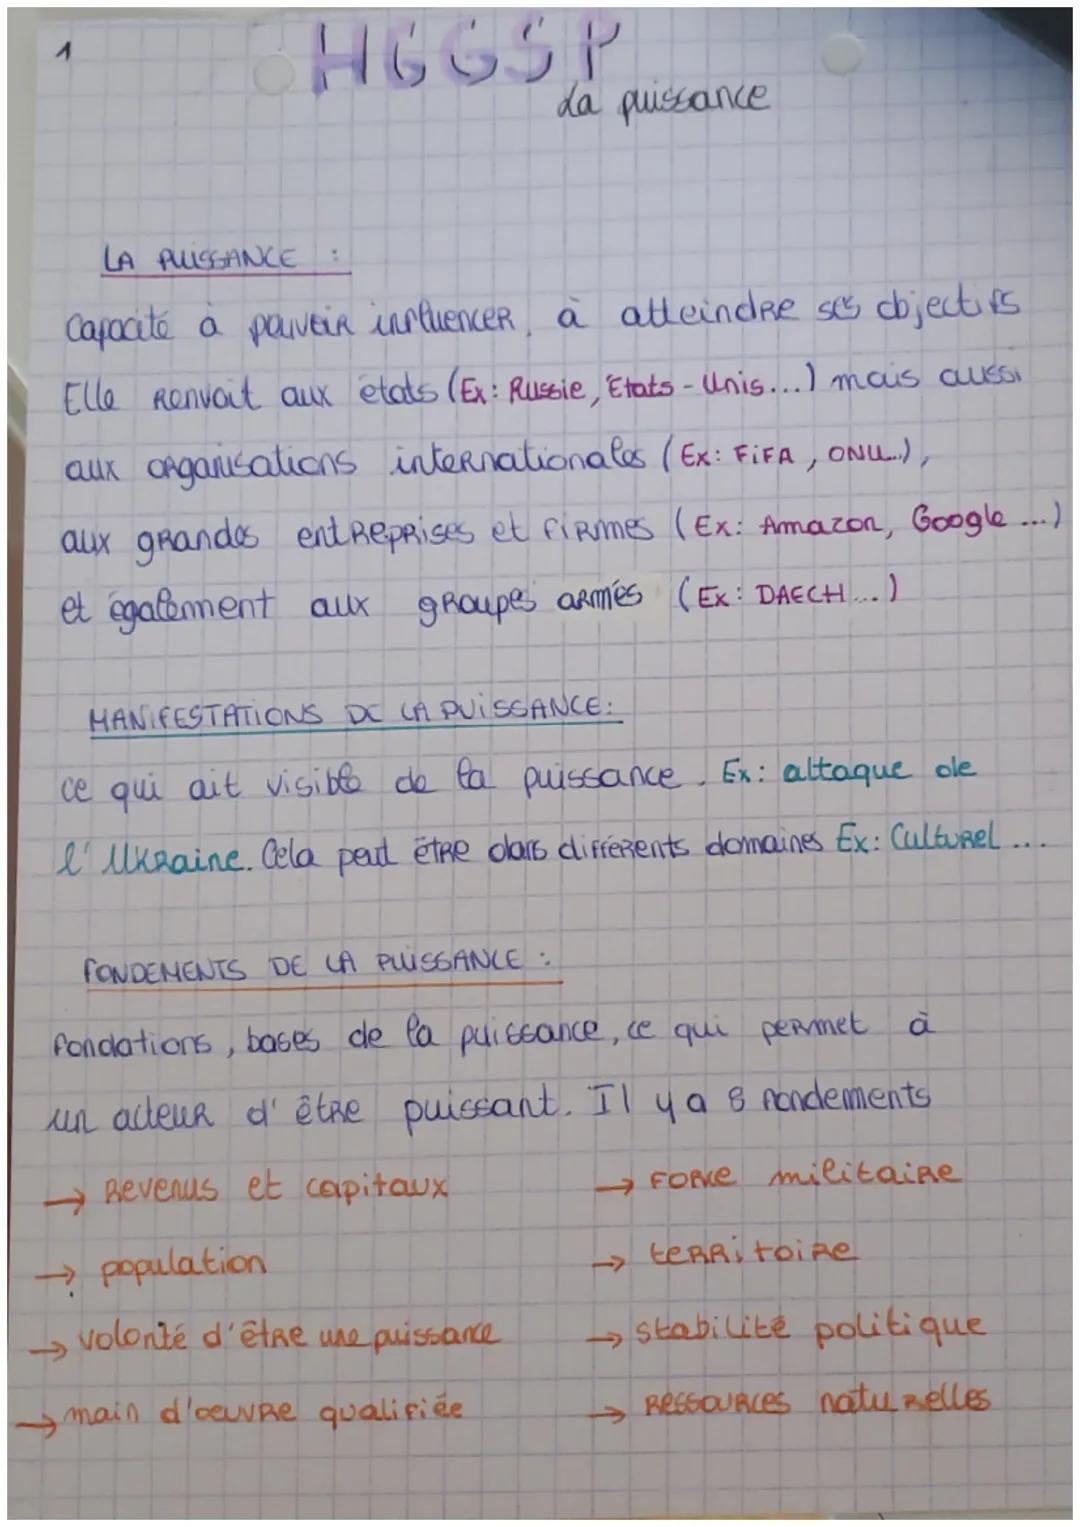 1
HGGSP
La puissance
LA PUISSANCE :
Capacité à pouvoir influencer, à atteindre ses objectifs
Elle renvoit aux états (Ex: Russie, Etats-Unis...) mais aussi
aux organisations internationales (Ex: FiFA, ONU...),
aux grandes entreprises et firmes (Ex: Amazon, Google ...)
et également aux groupes armés (Ex: DAECH ...)
MANiFESTATiONS DE LA PUiSSANCE:
ce qui ait visible de la puissance. Ex: attaque de
l'Ukraine. Cela peut être dans différents domaines Ex: Culturel ...
FONDEMENTS DE LA PUISSANCE :
fondations, bases de la puissance, ce qui permet à
un acteur d'être puissant. Il y a 8 fondements
→ Revenus et capitaux → Force militaire
→ population → territoire
→ volonté d'être une puissance → stabilité politique
→ main d'oeuvre qualifiée → Ressources naturelles